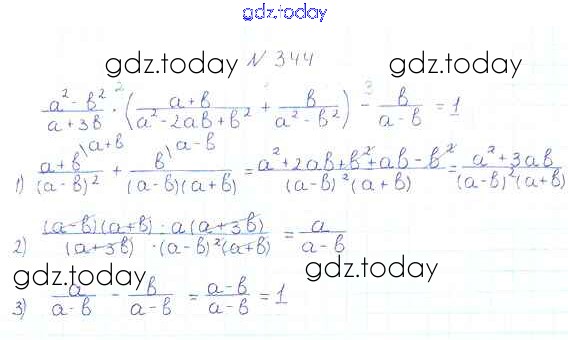 gdz.today
gdz.today № 344 gdz.today
2 3
(a² - b²)/(a + 3b) · ((a + b)/(a² - 2ab + b²) + b/(a² - b²)) - b/(a - b) = 1
1) (a + b)\a+b/(a - b)² + b\a-b/((a - b)(a + b)) = (a² + 2ab + b² + ab - b²)/((a - b)²(a + b)) = (a² + 3ab)/((a - b)²(a + b))
2) ((a - b)(a + b) · a(a + 3b))/((a + 3b) · (a - b)²(a + b)) = a/(a - b)
gdz.today gdz.today
3) a/(a - b) - b/(a - b) = (a - b)/(a - b) = 1